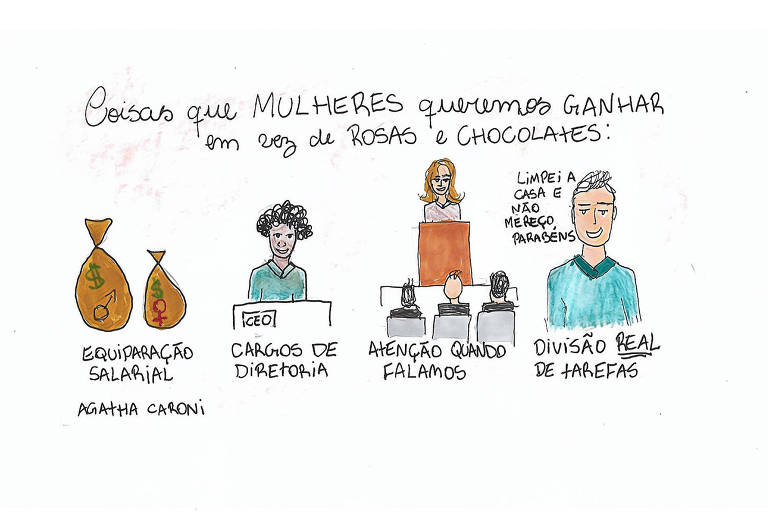 Coisas que MULHERES queremos GANHAR
em vez de ROSAS e CHOCOLATES:
$
$
CEO
LIMPEI A
CASA E
NÃO
MEREÇO
PARABÉNS
EQUIPARAÇÃO
SALARIAL
CARGOS DE
DIRETORIA
ATENÇÃO QUANDO
FALAMOS
DIVISÃO REAL
DE TAREFAS
AGATHA CARONI